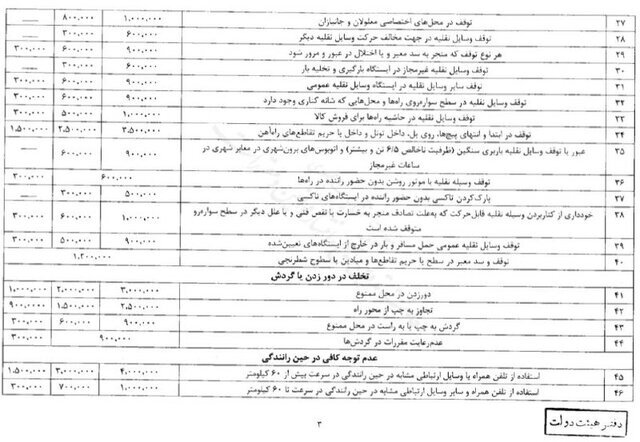 ۲۷ توقف در محل‌های اختصاصی معلولان و جانبازان ۱,۰۰۰,۰۰۰ ۸۰۰,۰۰۰ ——
۲۸ توقف وسایل نقلیه در جهت مخالف حرکت وسایل نقلیه دیگر ۶۰۰,۰۰۰ ۳۰۰,۰۰۰ ——
۲۹ هر نوع توقف که منجر به سد معبر و یا اختلال در عبور و مرور شود ۹۰۰,۰۰۰ ۶۰۰,۰۰۰ ۳۰۰,۰۰۰
۳۰ توقف وسایل نقلیه غیرمجاز در ایستگاه بارگیری و تخلیه بار ۶۰۰,۰۰۰ ۳۰۰,۰۰۰ ——
۳۱ توقف سایر وسایل نقلیه در ایستگاه وسایل نقلیه عمومی ۹۰۰,۰۰۰ ۶۰۰,۰۰۰ ۳۰۰,۰۰۰
۳۲ توقف وسایل نقلیه در سطح سواره‌روی راه‌ها و محل‌هایی که شانه کناری وجود دارد ۹۰۰,۰۰۰ ۶۰۰,۰۰۰ ۳۰۰,۰۰۰
۳۳ توقف وسایل نقلیه در حاشیه راه‌ها برای فروش کالا ۱,۰۰۰,۰۰۰ ۵۰۰,۰۰۰ ۳۰۰,۰۰۰
۳۴ توقف در ابتدا و انتهای پیچ‌ها، روی پل، داخل تونل و داخل یا حریم تقاطع‌های راه‌آهن ۳,۵۰۰,۰۰۰ ۲,۵۰۰,۰۰۰ ۱,۵۰۰,۰۰۰
۳۵ عبور یا توقف وسایل نقلیه باربری سنگین (ظرفیت ناخالص ۶/۵ تن و بیشتر) و اتوبوس‌های برون‌شهری در معابر شهری در ۹۰۰,۰۰۰ ۶۰۰,۰۰۰ ——
ساعات غیرمجاز
۳۶ توقف وسیله نقلیه با موتور روشن بدون حضور راننده در راه‌ها ۶۰۰,۰۰۰ ۳۰۰,۰۰۰
۳۷ پارک‌کردن تاکسی بدون حضور راننده در ایستگاه‌های تاکسی ۵۰۰,۰۰۰ ۳۰۰,۰۰۰ ——
۳۸ خودداری از کناربردن وسیله نقلیه قابل‌حرکت که به‌علت تصادف منجر به خسارت یا نقص فنی و یا علل دیگر در سطح سواره‌رو ۱,۰۰۰,۰۰۰ ۶۰۰,۰۰۰ ۳۰۰,۰۰۰
متوقف شده است
۳۹ توقف وسایل نقلیه عمومی حمل مسافر و بار در خارج از ایستگاه‌های تعیین‌شده ۹۰۰,۰۰۰ ۵۰۰,۰۰۰ ۳۰۰,۰۰۰
۴۰ توقف و سد معبر در سطح یا حریم تقاطع‌ها و میادین با سطوح شطرنجی ۱,۲۰۰,۰۰۰
تخلف در دور زدن یا گردش
۴۱ دورزدن در محل ممنوع ۳,۰۰۰,۰۰۰ ۲,۰۰۰,۰۰۰ ۱,۰۰۰,۰۰۰
۴۲ تجاوز به چپ از محور راه ۲,۵۰۰,۰۰۰ ۱,۵۰۰,۰۰۰ ۹۰۰,۰۰۰
۴۳ گردش به چپ یا به راست در محل ممنوع ۹۰۰,۰۰۰ ۶۰۰,۰۰۰ ۳۰۰,۰۰۰
۴۴ عدم‌رعایت مقررات در گردش‌ها ۹۰۰,۰۰۰ ۳۰۰,۰۰۰
عدم توجه کافی در حین رانندگی
۴۵ استفاده از تلفن همراه یا وسایل ارتباطی مشابه در حین رانندگی در سرعت بیش از ۶۰ کیلومتر ۴,۰۰۰,۰۰۰ ۳,۰۰۰,۰۰۰ ۱,۵۰۰,۰۰۰
۴۶ استفاده از تلفن همراه و سایر وسایل ارتباطی مشابه در حین رانندگی در سرعت تا ۶۰ کیلومتر ۱,۰۰۰,۰۰۰ ۷۰۰,۰۰۰ ۳۰۰,۰۰۰
۳
دفتر هیئت دولت